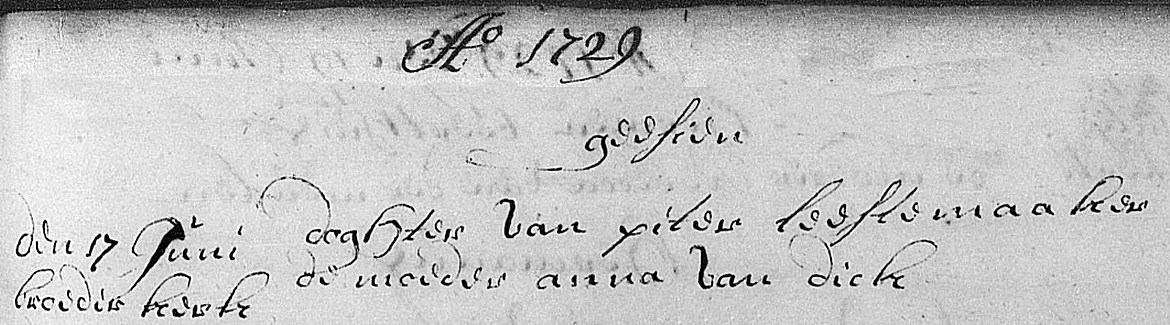 Ao 1729
geesien
den 17 Juni doghter van piter leestemaaker
broeder kerk de moeder anna van dick